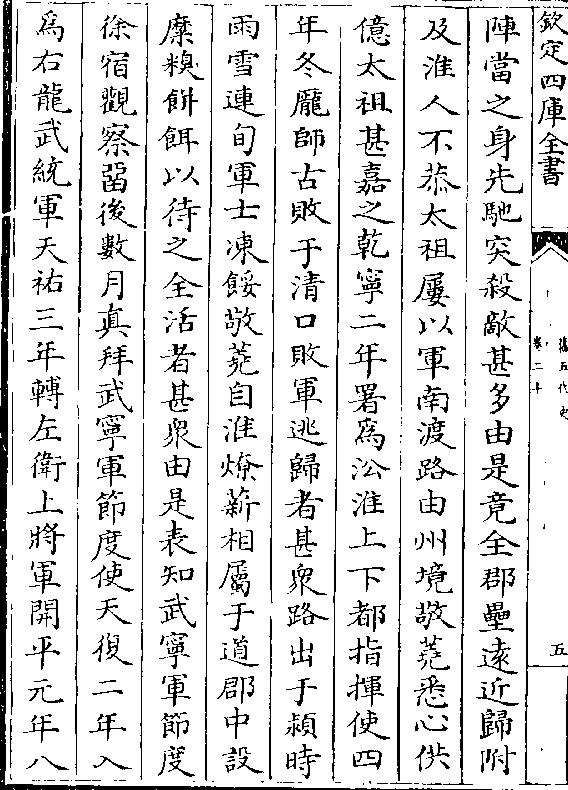 欽定四庫全書
舊五代史
卷二十
五
陣當之身先馳突殺敵甚多由是竟全郡壘遠近歸附
及淮人不恭太祖屢以軍南渡路由州境敬蕘悉心供
億太祖甚嘉之乾寧二年署為㳂淮上下都指揮使四
年冬龐師古敗于清口敗軍逃歸者甚衆路出于潁時
雨雪連旬軍士凍餒敬蕘自淮燎薪相屬于道郡中設
糜糗餅餌以待之全活者甚衆由是表知武寧軍節度
徐宿觀察留後數月真拜武寧軍節度使天復二年入
為右龍武統軍天祐三年轉左衛上將軍開平元年八